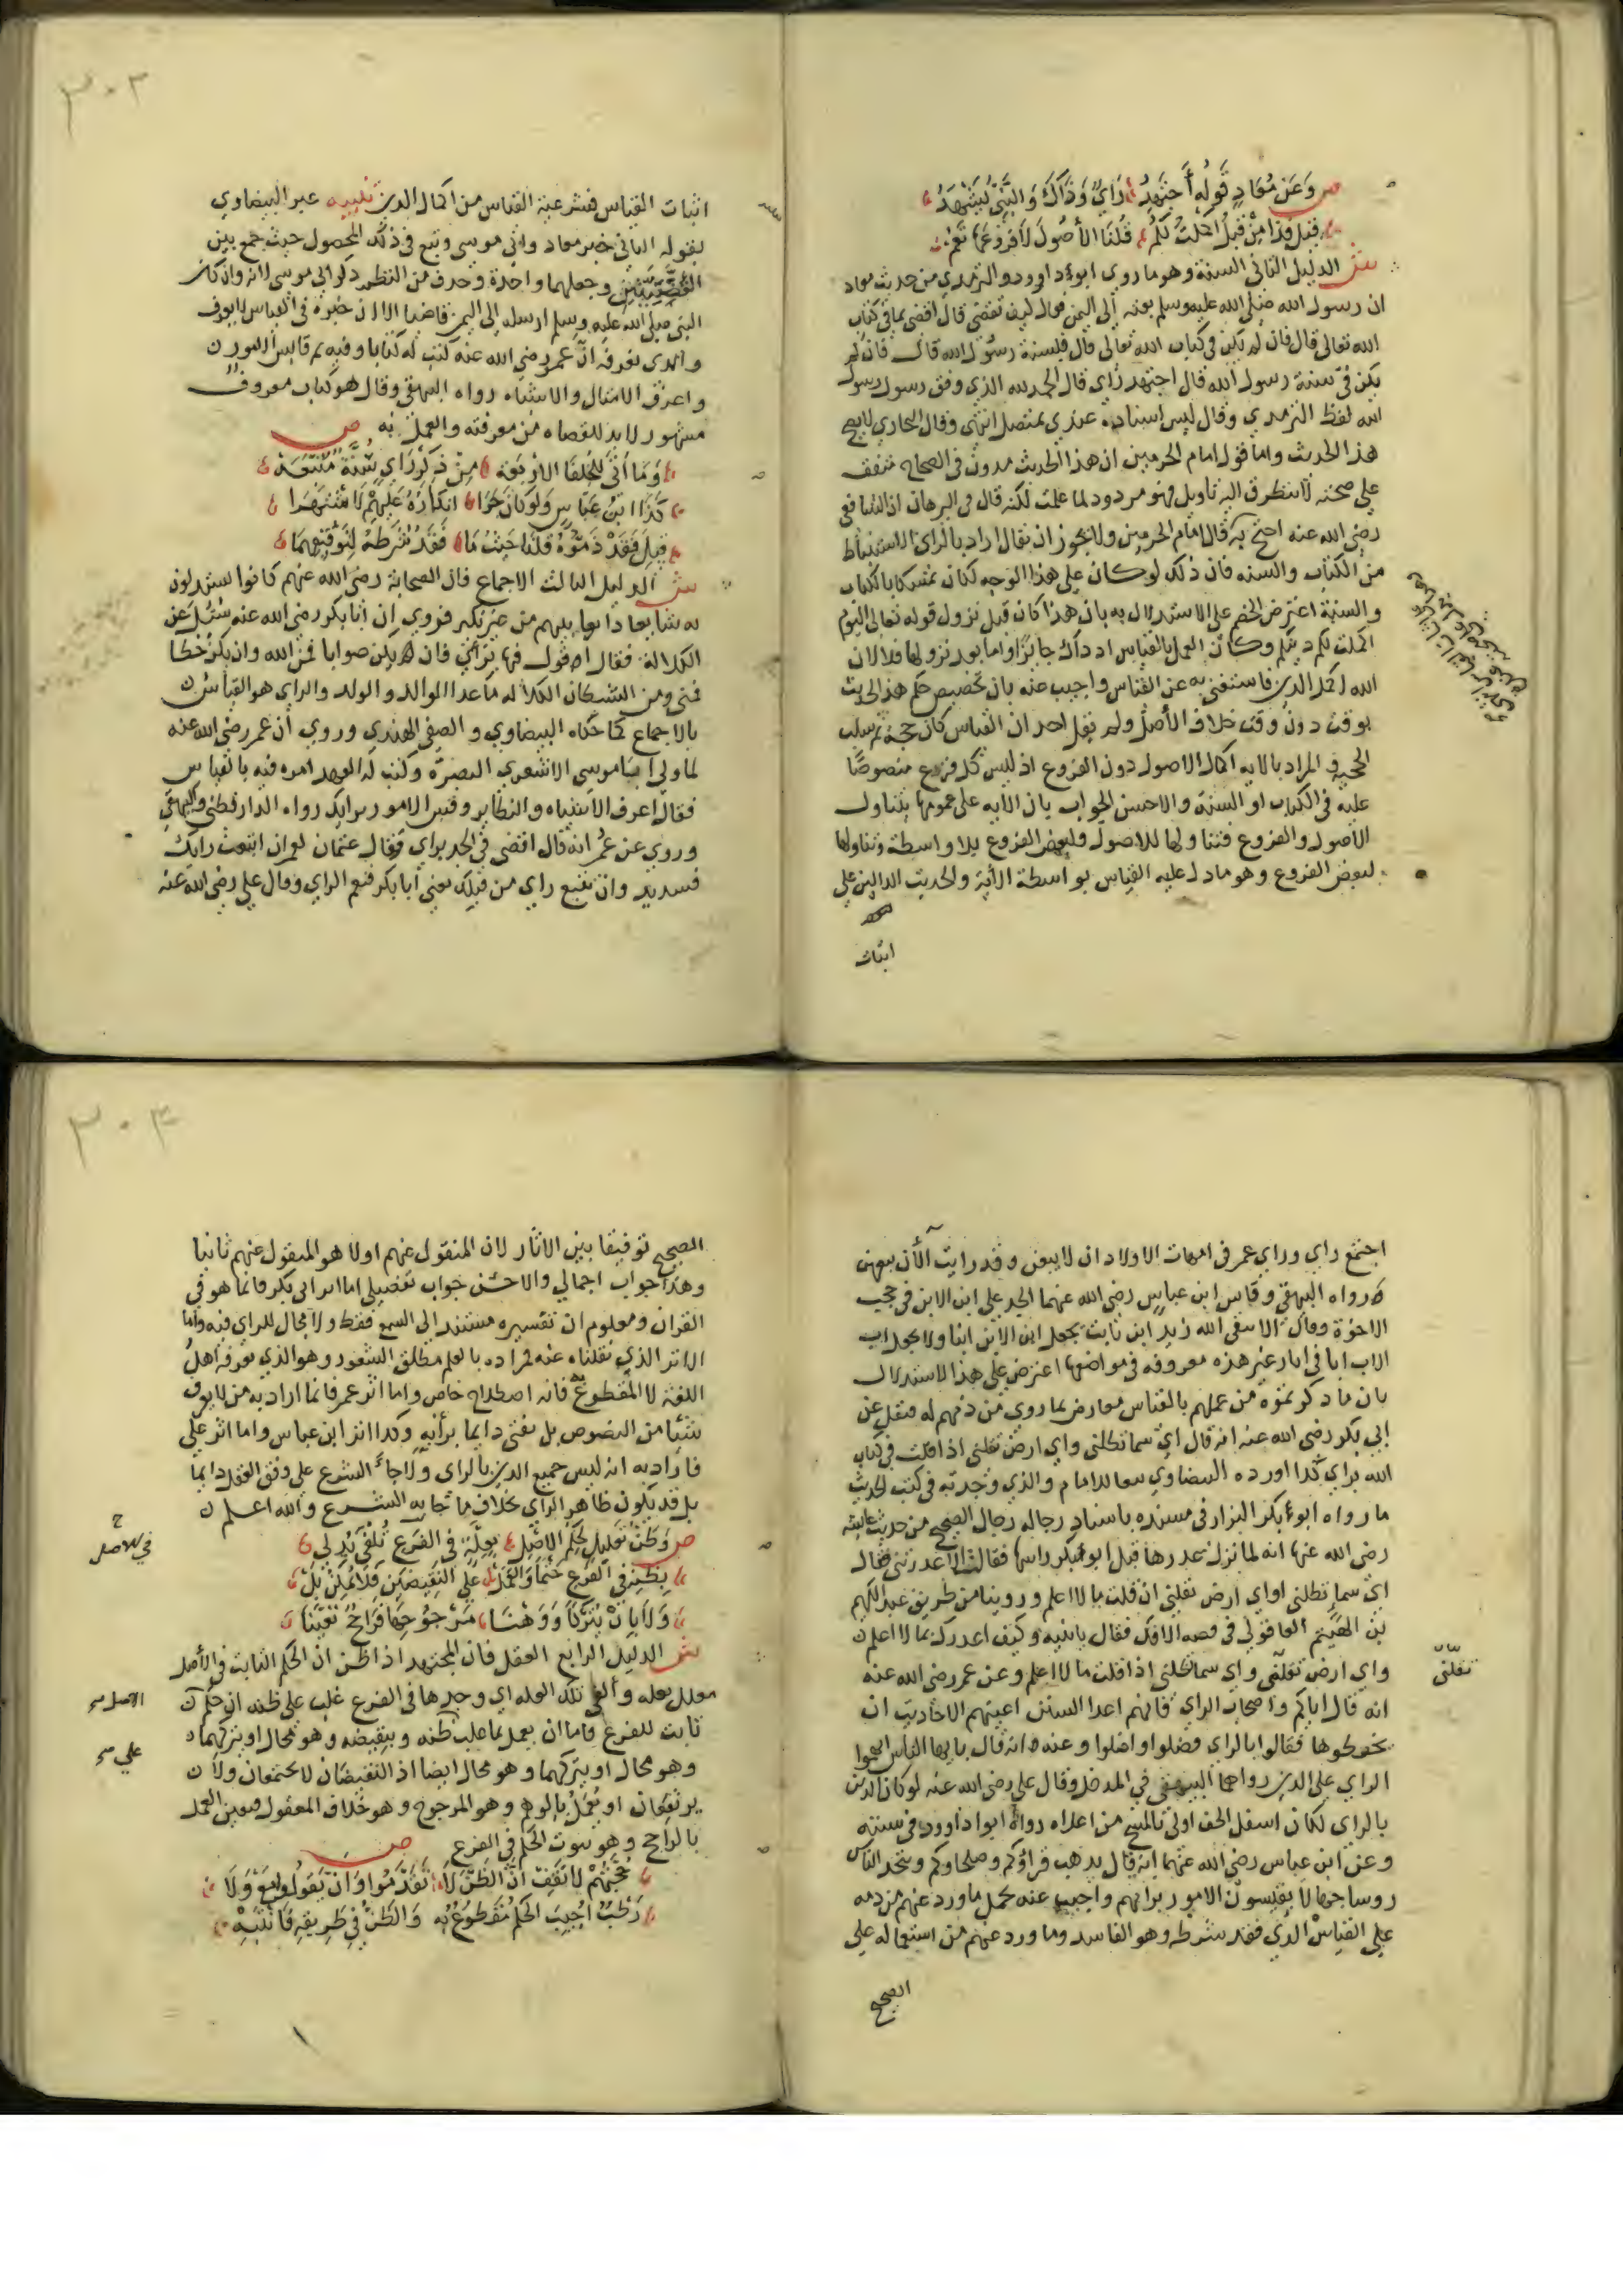 ص وَعَن مُعَاذٍ قَولُه أَجتَهِدُ رَأيي وَذَاكَ وَالنَّبِيُّ يَشهَدُ
قيل وذا من قبل اكملت لكم قلنا الأصول لا فروعها نعم
ش الدليل الثاني السنة وهو ما روي ابوءداوود والترمذي من حديث معاذ
ان رسول الله صلى الله عليه وسلم بعثه إلى اليمن فقال كيف تقضي قال اقضي بما في كتاب
الله تعالى قال فان لم يكن في كتاب الله تعالى قال فبسنة رسول الله قال فان لم
يكن في سنة رسول الله قال اجتهد رأي قال الحمد لله الذي وفق رسول رسول
الله لفظ الترمذي وقال ليس اسناده عندي بمتصل انتهى وقال البخاري لا يصح
هذا الحديث واما قول امام الحرمين ان هذا الحديث مدون في الصحاح متفق
على صحته لا يتطرق اليه تاويل فهو مردود لما علمت لكنه قال في البرهان ان الشافعي
رضي الله عنه احتج به قال امام الحرمين ولا يجوز ان يقال اراد بالراي الاستنباط
من الكتاب والسنه فان ذلك لو كان على هذا الوجه لكان تمسكا بالكتاب
والسنة اعترض الخصم على الاستدلال به بان هذا كان قبل نزول قوله تعالى اليوم
اكملت لكم دينكم وكان العمل بالقياس اذ ذاك جائزا واما بعد نزولها فلا لان
الله اكمل الدين فاستغنى به عن القياس واجيب عنه بان تخصيص حكم هذا الحديث
بوقت دون وقت خلاف الأصل ولم يقل احد ان القياس كان حجة ثم سلب
الحجية والمراد بالايه اكمال الاصول دون الفروع اذ ليس كل فروع منصوصا
عليه في الكتاب او السنة والاحسن الجواب بان الايه على عمومها يتناول
الاصول والفروع فتناولها للاصول ولبعض الفروع بلا واسطة وتناولها
لبعض الفروع وهو ما دل عليه القياس بواسطة الأية والحديث الدالين على
اثبات
٣٠٣
اثبات القياس فشرعية القياس من اكمال الدين تنبيه عبر البيضاوي
بقوله الثاني خبر معاذ وابي موسى وتبع في ذلك المحصول حيث جمع بين
القصتين وجعلهما واحدة وحذف من النظم ذكر ابي موسى لانه وان كان
النبي صلى الله عليه وسلم ارسله إلى اليمن قاضيا الا ان خبره في القياس لا يعرف
والذي نعرفه ان عمر رضي الله عنه كتب له كتابا وفيه ثم قايس الامور
واعرف الامثال والاشباه رواه البيهقي وقال هو كتاب معروف
مشهور لا بد للقضاه من معرفته والعمل به ص
وَمَا أتى للخلفا الاربعه من ذكر رأي سنة متبعه
كذا ابن عباس ولو كان جرا انكاره عليهم لاشتهرا
قيل فقد ذموه قلنا حيث ما فقد شرطه لتوفيقهما
ش الدليل الثالث الاجماع فان الصحابة رضي الله عنهم كانوا يستدلون
به شائعا ذائعا بينهم من غير نكير فروي ان ابا بكر رضي الله عنه سئل عن
الكلالة فقال اقول فيها برأيي فان يكن صوابا فمن الله وان يكن خطا
فمني ومن الشيطان الكلالة ما عدا الوالد والولد والراي هو القياس
بالاجماع كما حكاه البيضاوي والصفي الهندي وروي أن عمر رضي الله عنه
لما ولى أبا موسى الاشعري البصرة وكتب له العهد امره فيه بالقياس
فقال اعرف الاشباه والنظاير وقس الامور برايك رواه الدارقطني والبيهقي
وروي عن عمر انه قال اقضي في الجد براي وقال عثمان لعمر ان اتبعت رايك
فسديد وان تتبع راي من قبلك يعني أبا بكر فنعم الراي وقال علي رضي الله عنه
اجتمع راي وراي عمر في امهات الاولاد ان لا يبعن وقد رايت الأن بيعهن
رواه البيهقي وقاس ابن عباس رضي الله عنهما الجد على ابن الابن في حجب
الاخوة وقال الا يتقي الله زيد ابن ثابت يجعل ابن الابن ابنا ولا يجعل اب
الاب ابا في اثار غير هذه معروفه في مواضعها اعترض على هذا الاستدلال
بان ما ذكرتموه من عملهم بالقياس معارض بما روي من ذمهم له فنقل عن
ابي بكر رضي الله عنه انه قال اي سما تظلني واي ارض تقلني اذا قلت في كتاب
الله براي كذا اورده البيضاوي تبعا للامام والذي وجدته في كتب الحديث
ما رواه ابوءبكر البزار في مسنده باسناد رجاله رجال الصحيح من حديث عايشة
رضي الله عنها انه لما نزل عذرها قبل ابوءبكر راسها فقالت الا عذرتني فقال
اي سما تظلني او اي ارض تقلني ان قلت ما لا اعلم وروينا من طريق عبد الكريم
بن الهيثم العاقولي في قصه الافك فقال يا بنيه وكيف اعذرك بما لا اعلم
واي ارض تقلني واي سما تظلني اذا قلت ما لا اعلم وعن عمر رضي الله عنه
تقلني
انه قال اياكم واصحاب الراي فانهم اعدا السنن اعيتهم الاحاديث ان
يحفظوها فقالوا بالراي فضلوا واضلوا وعنه انه قال يا ايها الناس اتهموا
الراي على الدين رواهما البيهقي في المدخل وقال علي رضي الله عنه لو كان الدين
بالراي لكان اسفل الخف اولى بالمسح من اعلاه رواه ابوا داوود في سننه
وعن ابن عباس رضي الله عنهما انه قال يذهب قراؤكم وصلحاؤكم ويتخذ الناس
روسا جهالا يقيسون الامور برايهم واجيب عنه بحمل ما ورد عنهم من ذمه
على القياس الذي فقد شرطه وهو الفاسد وما ورد عنهم من استعماله على
الصحيح
٣٠٤
الصحيح توفيقا بين الاثار لان المنقول عنهم اولا هو المنقول عنهم ثانيا
وهذا جواب اجمالي والاحسن جواب تفصيلي اما اثر ابي بكر فانما هو في
القران ومعلوم ان تفسيره مستند إلى السمع فقط ولا مجال للراي فيه واما
الاثر الذي نقلناه عنه فمراده بالعلم مطلق الشعور وهو الذي يعرفه اهل
اللغة لا المقطوع فانه اصطلاح خاص واما اثر عمر فانما اراد به من لا يعرف
شيئا من النصوص بل يفتي دايما برأيه وكذا اثر ابن عباس واما اثر علي
فاراد به انه ليس جميع الدين بالراي ولا جاء الشرع على وفق العقل دايما
بل قد يكون ظاهر الراي بخلاف ما جا به الشرع والله اعلم
ص وظن تعليل لحكم الاصل بعلة في الفرع تلفى يدلي
في الاصل
بظنه في الفرع حتما والعمل على النقيضين فلا يمكن بل
ولا بان يتركا ووهنا مرجوحها فراجح تعينا
ش الدليل الرابع العقل فان المجتهد اذا ظن ان الحكم الثابت في الأصل
معلل بعله وألفى تلك العله اي وجدها في الفرع غلب على ظنه ان حكم
الاصل
ثابت للفرع فاما ان يعمل بما غلب ظنه وبنقيضه وهو محال او يتركهما
على
وهو محال او يتركهما وهو محال ايضا اذ النقيضان لا يجتمعان ولا
يرتفعان او يعمل بالوهم وهو المرجوح وهو خلاف المعقول فتعين العمل
بالراجح وهو ثبوت الحكم في الفرع ص
حجتهم لا تقف ان الظن لا تقدموا وان تقولوا مع ولا
رطب اجيب الحكم مقطوع به والظن في طريقه فانتبه